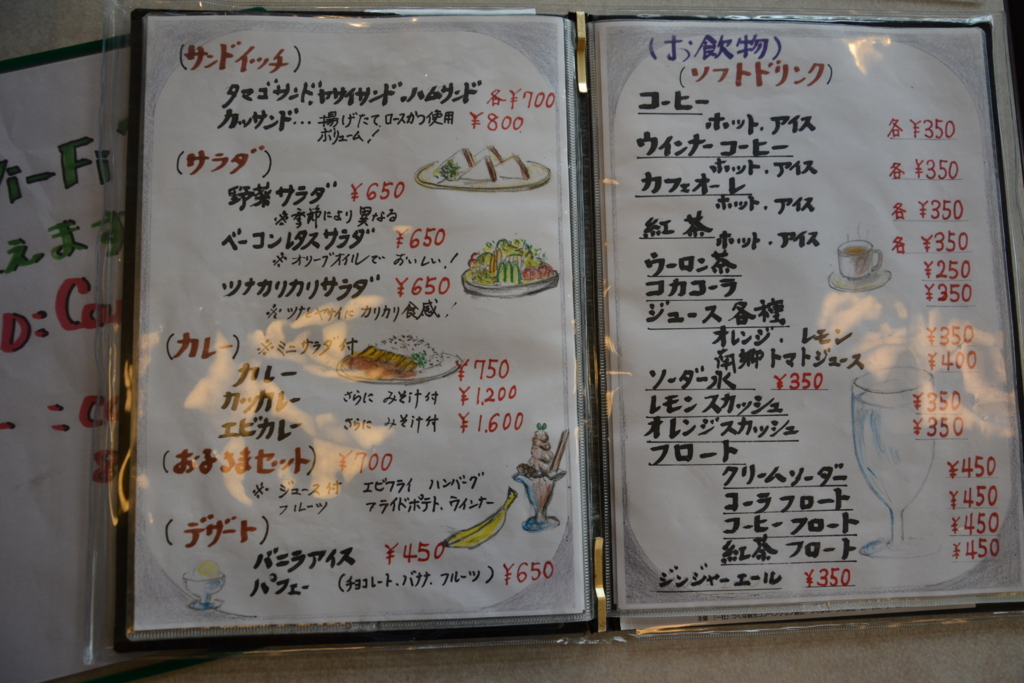 (サンドイッチ)
タマゴサンド、ヤサイサンド、ハムサンド 各¥700
カツサンド…揚げたてロースかつ使用 ¥800
ボリューム!
(サラダ)
野菜サラダ ¥650
※季節により異なる
ベーコンレタスサラダ ¥650
※オリーブオイルでおいしい!
ツナカリカリサラダ ¥650
※ツナとヤサイにカリカリ食感!
(カレー) ※ミニサラダ付
カレー ¥750
カツカレー さらに みそ汁付 ¥1,200
エビカレー さらに みそ汁付 ¥1,600
(お子さまセット) ¥700
※ジュース付 エビフライ ハンバーグ
フルーツ フライドポテト、ウインナー
(デザート)
バニラアイス ¥450
パフェー (チョコレート、バナナ、フルーツ) ¥650
(お飲物)
(ソフトドリンク)
コーヒー
ホット・アイス 各¥350
ウインナーコーヒー
ホット・アイス 各¥350
カフェオーレ
ホット・アイス 各¥350
紅茶
ホット・アイス 各¥350
ウーロン茶 ¥250
コカコーラ ¥350
ジュース各種
オレンジ・レモン ¥350
南郷トマトジュース ¥400
ソーダー水 ¥350
レモンスカッシュ ¥350
オレンジスカッシュ ¥350
フロート
クリームソーダー ¥450
コーラフロート ¥450
コーヒーフロート ¥450
紅茶フロート ¥450
ジンジャーエール ¥350
i-Fi
えます
D:Co